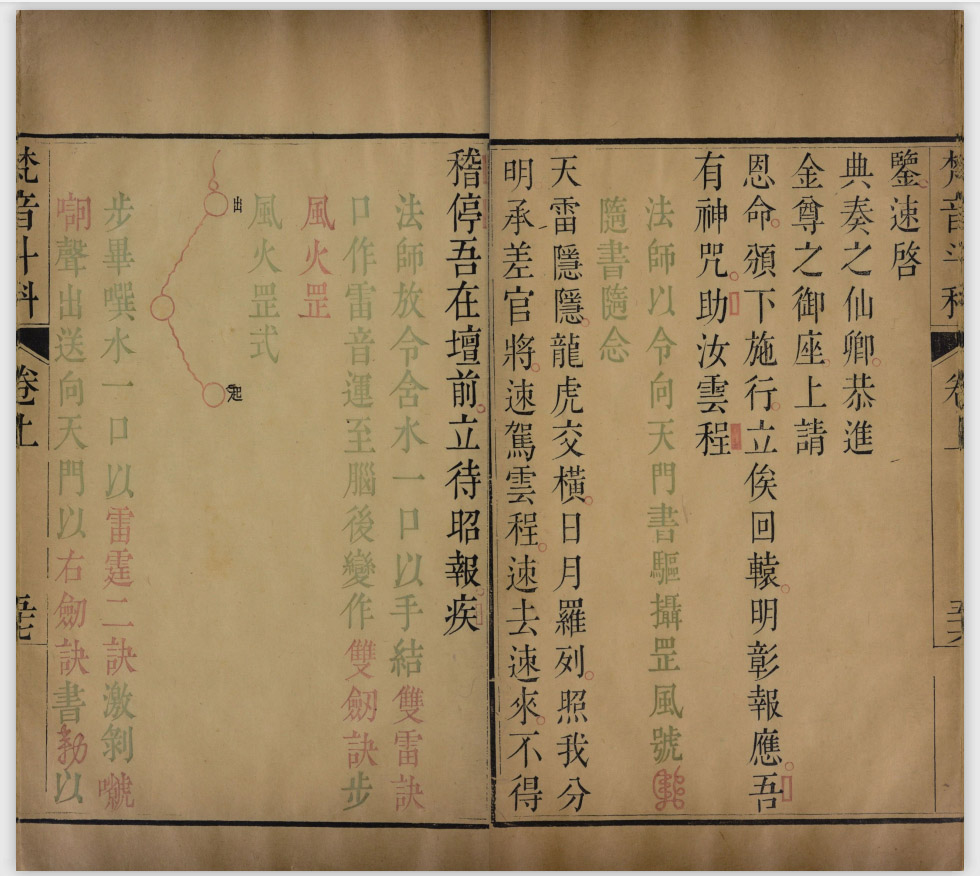 梵音斗科 卷上 五十六
鑒速啓
典奏之仙卿恭進
金尊之御座上請
恩命頒下施行立俟回轅明彰報應吾
有神咒助汝雲程
法師以令向天門書驅攝罡風號
隨書隨念
天雷隱隱龍虎交橫日月羅列照我分
明承差官將速駕雲程速去速來不得
稽停吾在壇前立待昭報疾
法師放令含水一口以手結雙雷訣
口作雷音運至腦後變作雙劒訣步
風火罡
風火罡式
出
起
步畢噀水一口以雷霆二訣激剝
聲出送向天門以右劒訣書勑以
梵音斗科 卷上 五十七